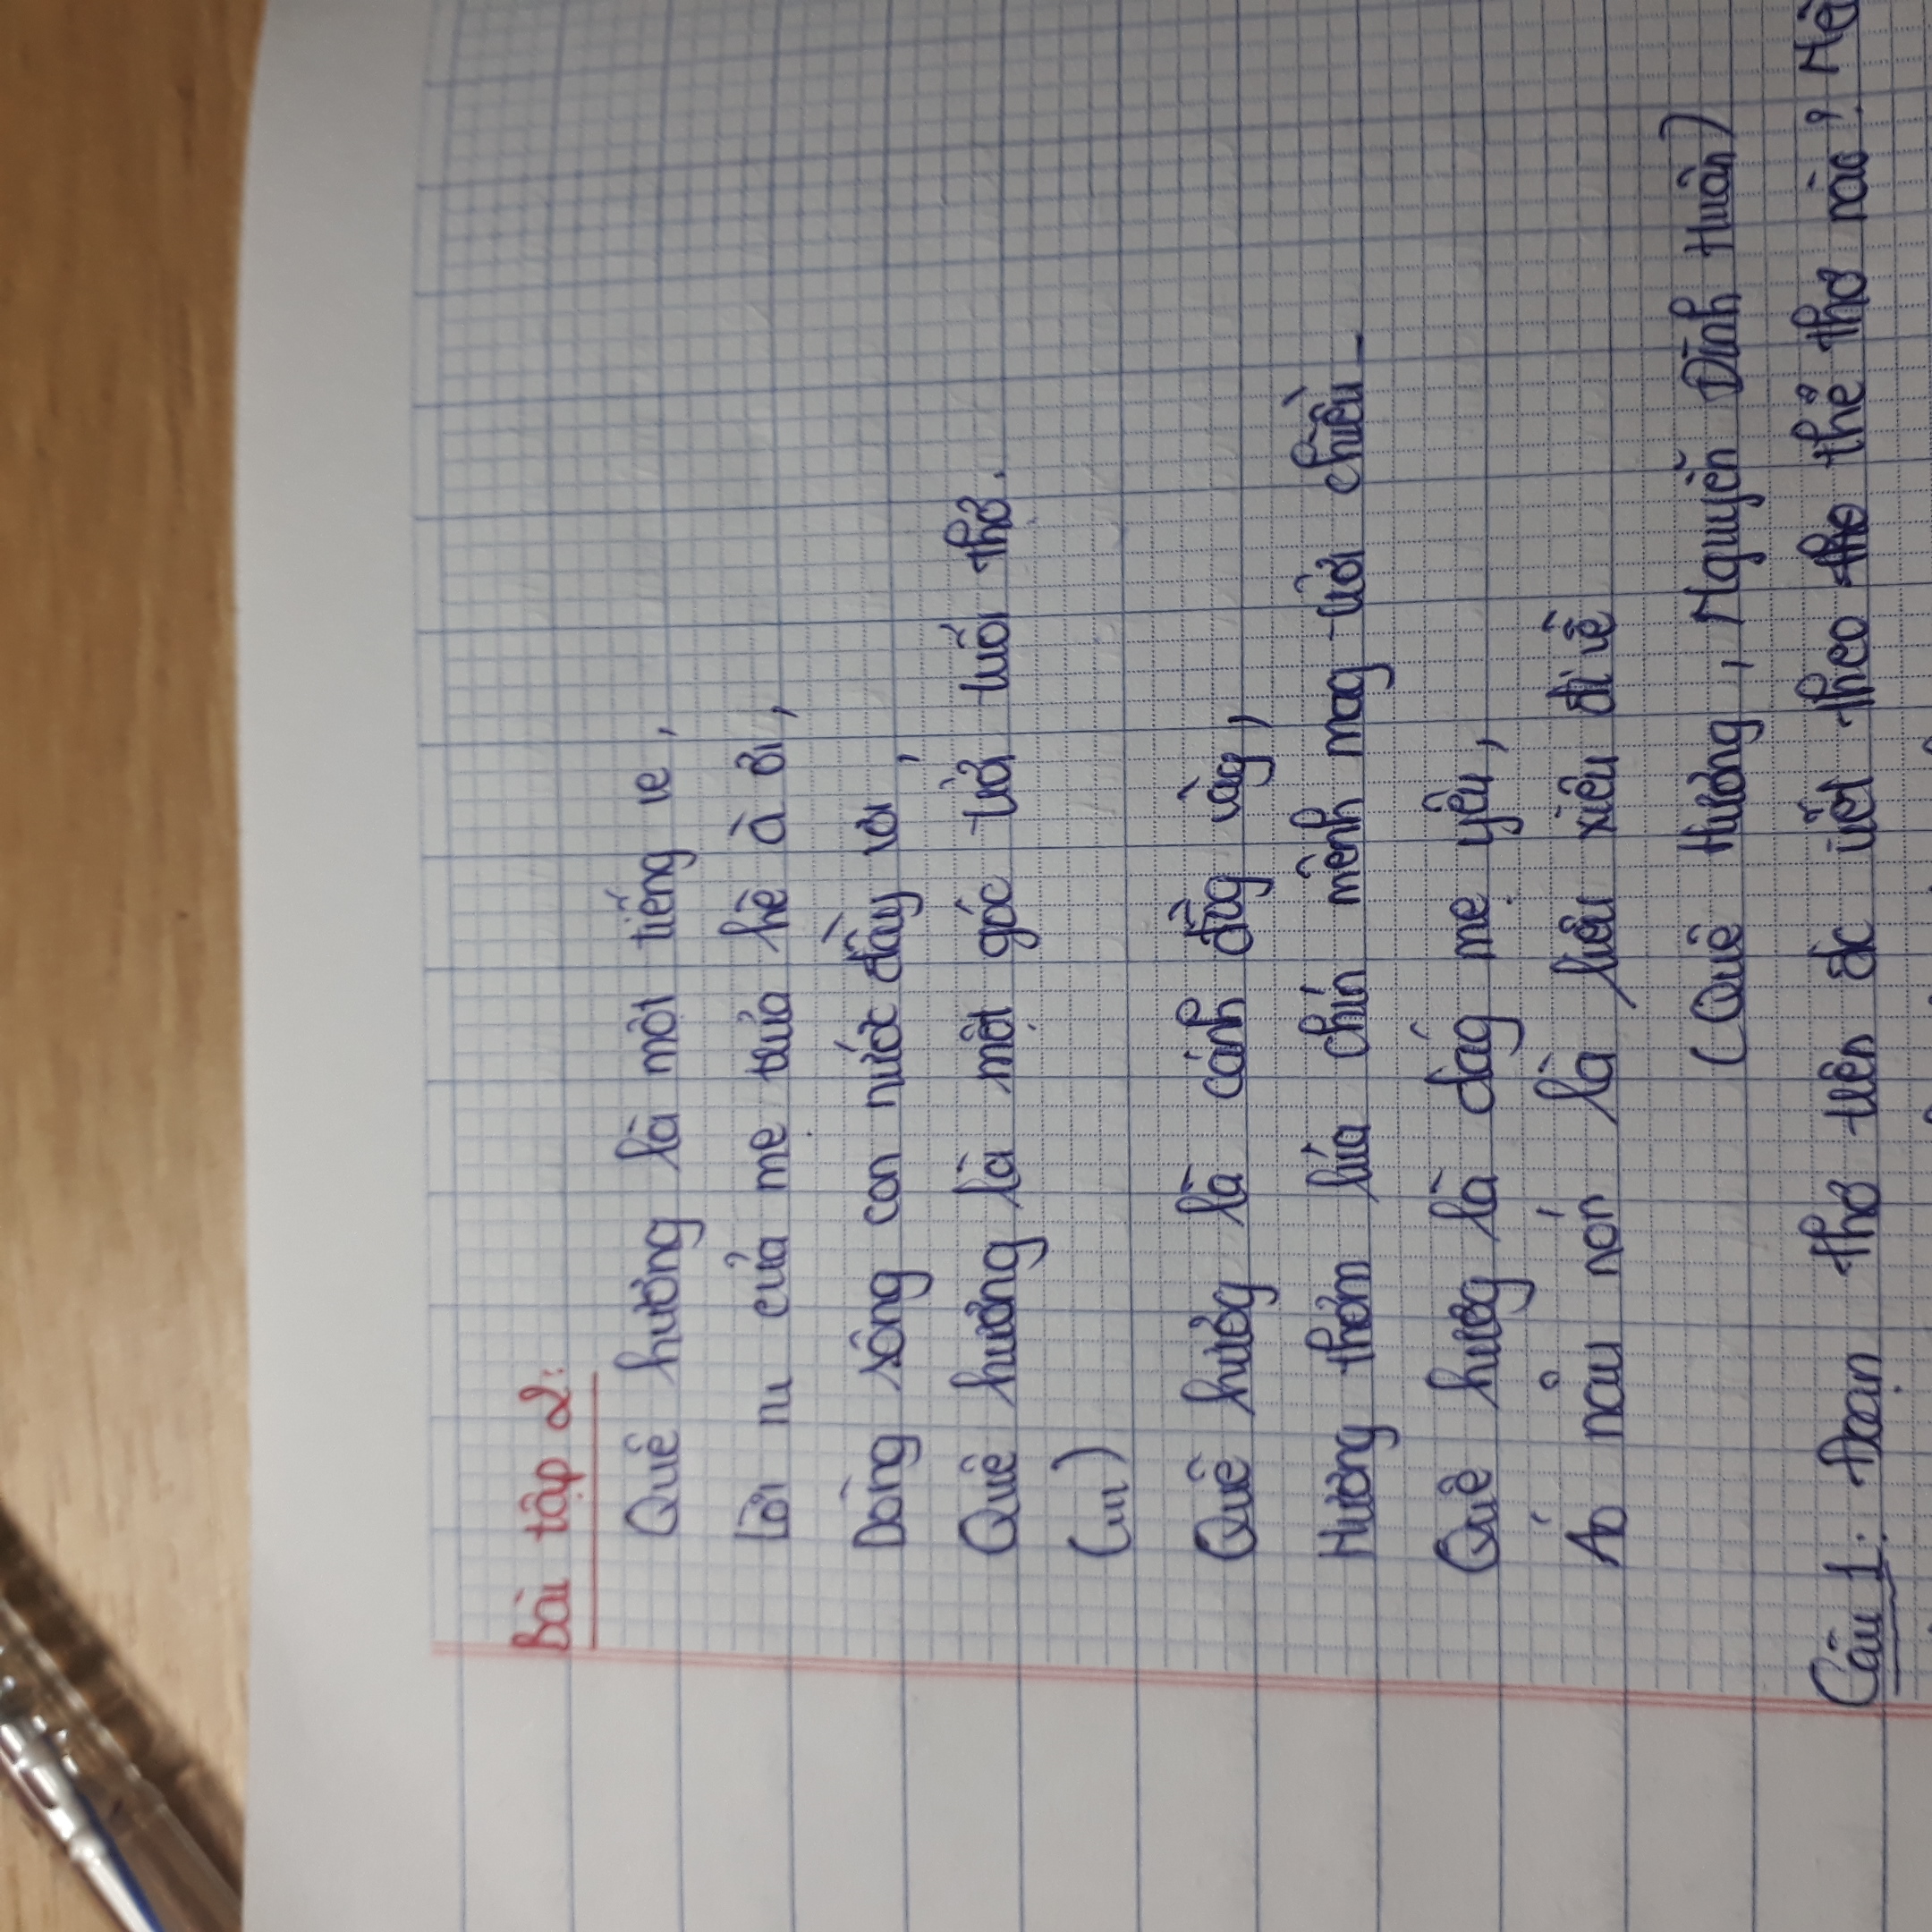 Bài tập 2:
Quê hương là một tiếng ve,
Lời ru của mẹ trưa hè à ơi,
Dòng sông con nước đầy vơi,
Quê hương là một góc trời tuổi thơ.
(...)
Quê hương là cánh đồng vàng,
Hương thơm lúa chín mênh mang trời chiều
Quê hương là dáng mẹ yêu,
Áo nâu nón lá liêu xiêu đi về
(Quê Hương, Nguyễn Đình Huân)
Câu 1: Đoạn thơ trên đc viết theo thể thơ nào?